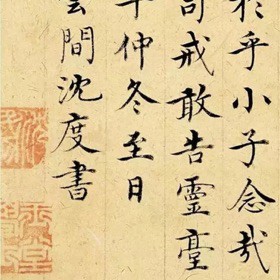 於乎小子念哉
司戒敢告靈臺
年仲冬至日
雲間沈度書